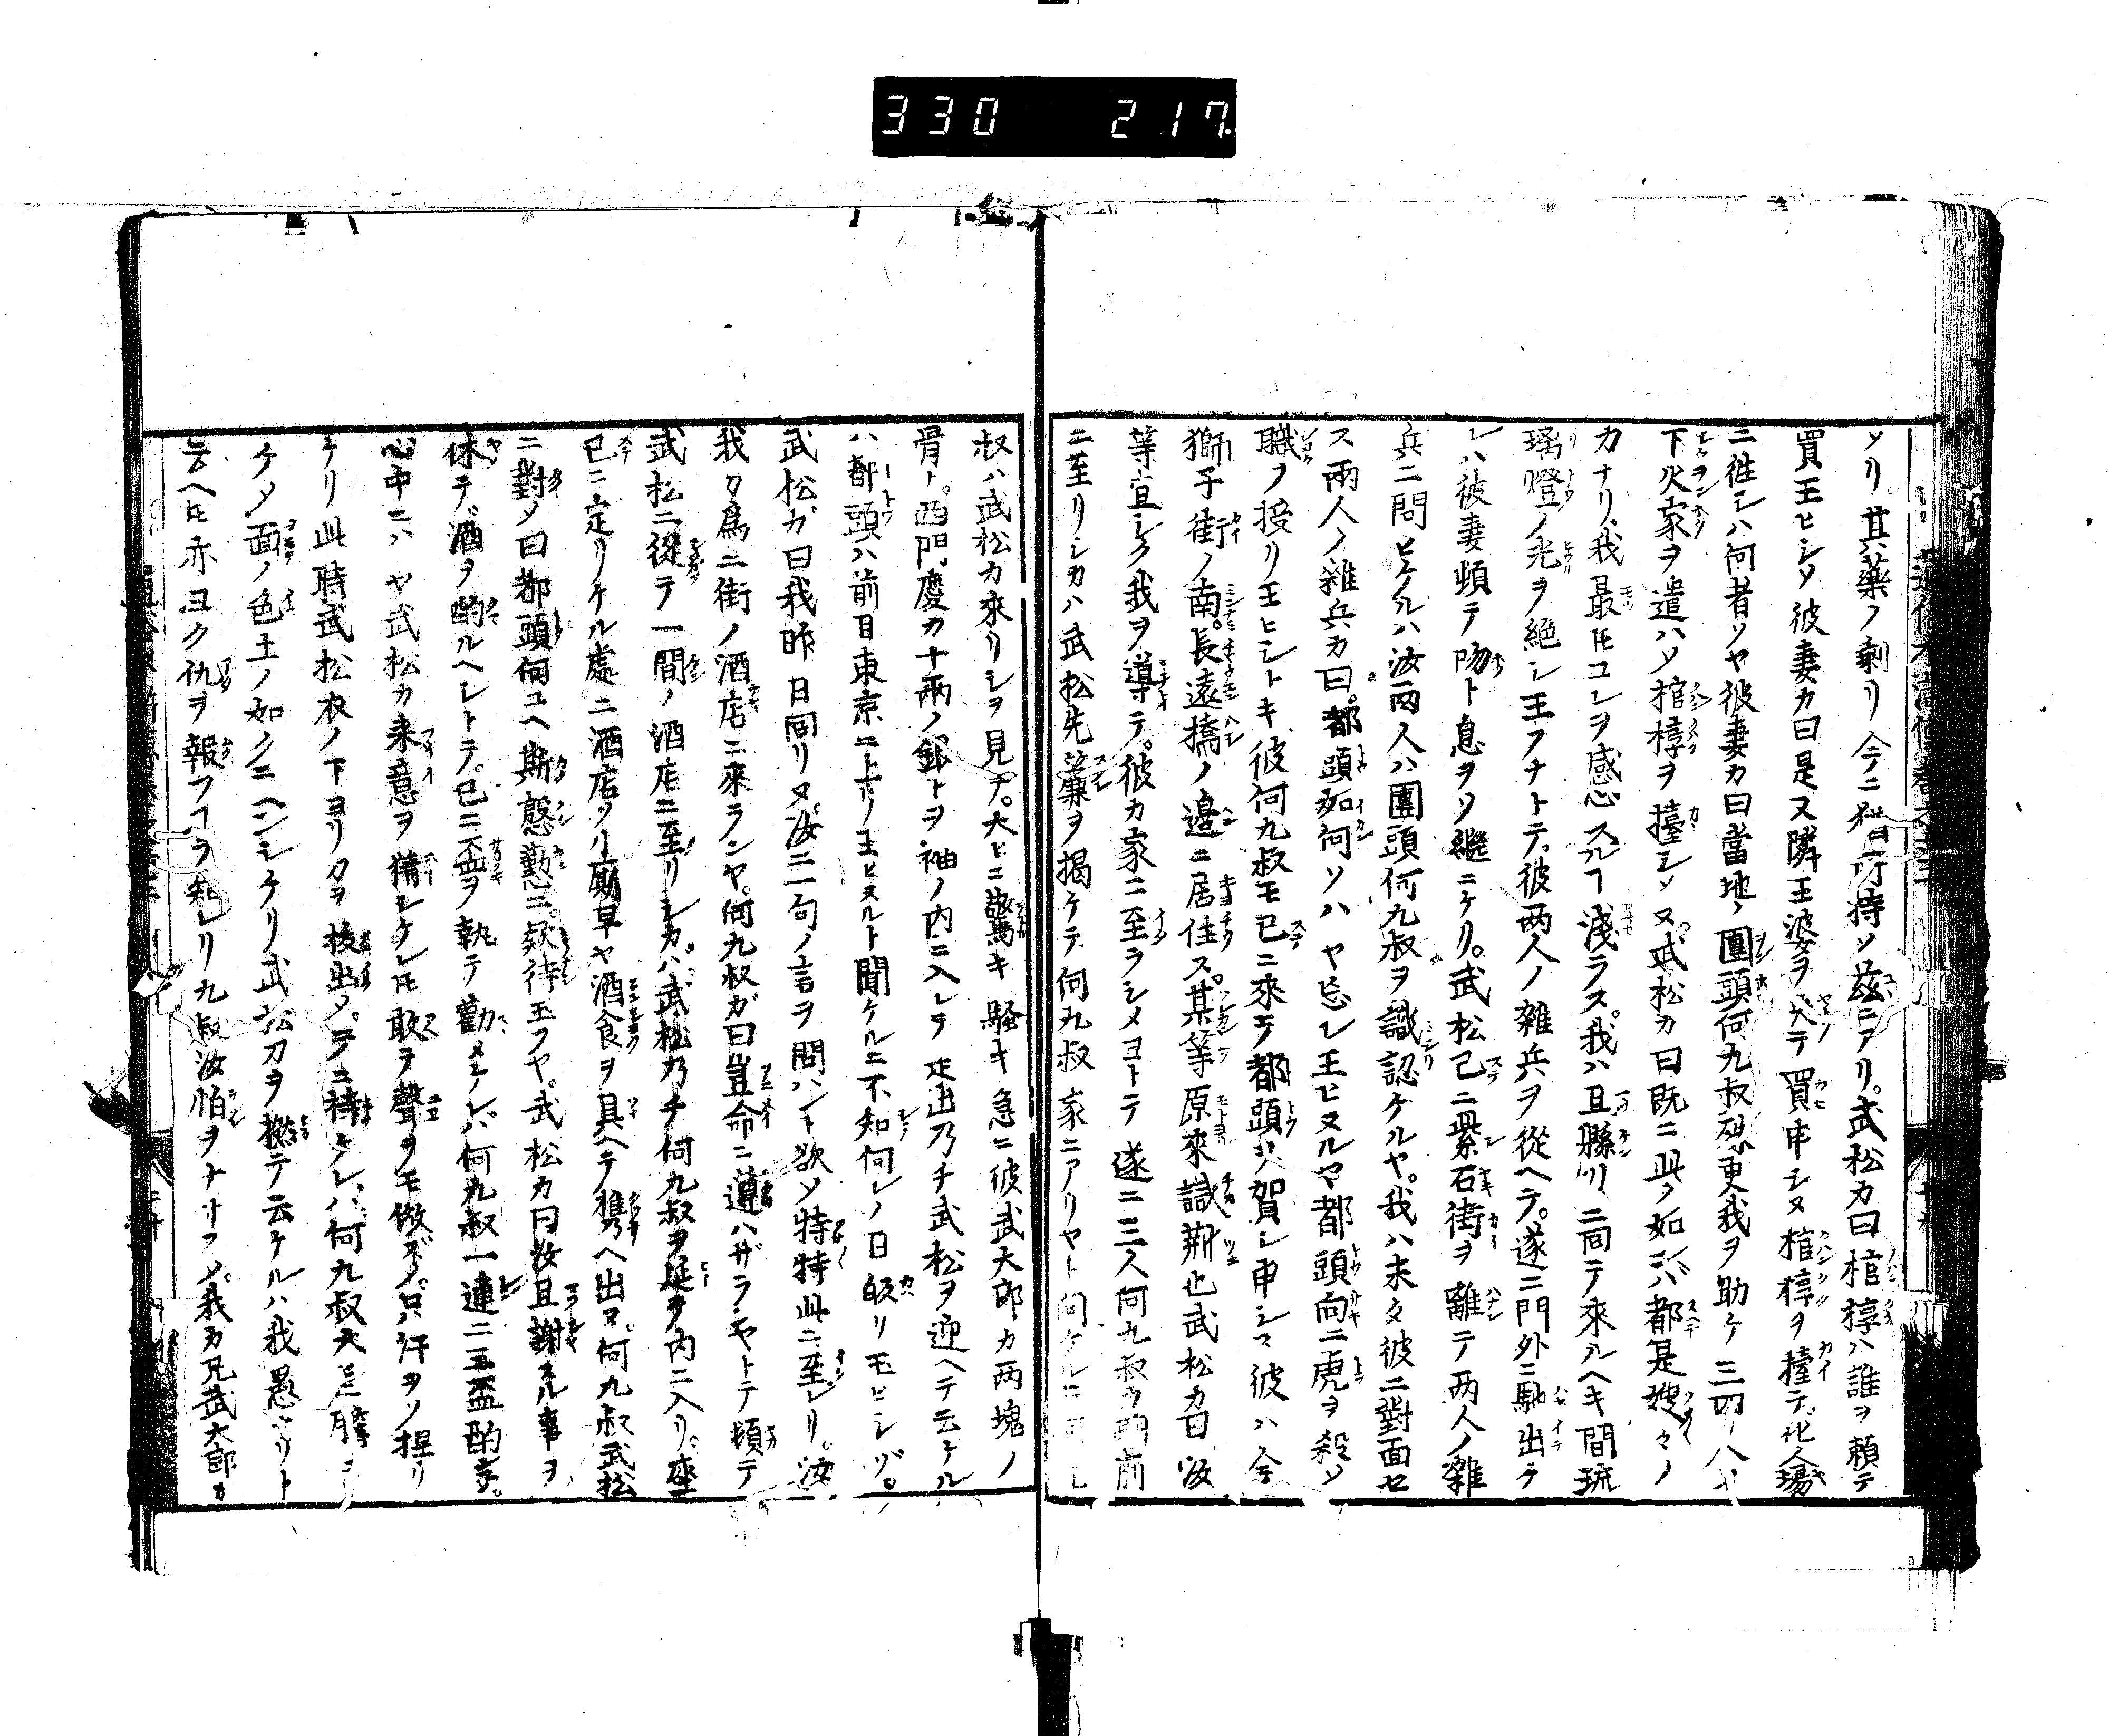 330 217
ソリ其藥ノ剰リ今ニ猶所持ソ茲ニアリ。武松カ曰棺椁ハ誰ヲ頼テ
買玉ヒシソ彼妻カ曰是又隣王婆ヲ央テ買申シヌ棺椁ヲ擡テ化人場
ニ徃シハ何者ソヤ彼妻カ曰當地ノ團頭何九叔我ヲ助ケ三四人ノ
下火家ヲ遣ハソ棺椁ヲ擡シソヌ。武松カ曰既ニ此ノ如ンハ都是嫂々ノ
カナリ、我最モコレヲ感心スルヿ淺ラス。我ハ且縣リニ囘テ來ルヘキ間琉
璃燈ノ光ヲ絶シ玉フナトテ。彼兩人ノ雑兵ヲ從ヘテ。遂ニ門外ニ馳出テ
シハ彼妻頓テ吻ト息ヲソ繼ニケリ。武松已ニ紫石街ヲ離テ兩人ノ雜
兵ニ問ヒケルハ汝兩人ハ團頭何九叔ヲ識認ケルヤ。我ハ未タ彼ニ對面セ
ス兩人ノ雜兵カ曰。都頭如何ソハヤ忘レ玉ヒヌルヤ都頭向ニ虎ヲ殺ソ
職ヲ授リ玉ヒシトキ彼何九叔モ已ニ來テ都頭ヲ賀シ申シヌ彼ハ今
獅子街ノ南。長遠橋ノ邊ニ居住ス。某等原來識荊也武松カ曰汝
等宜シク我ヲ導テ。彼カ家ニ至ラシメヨトテ遂ニ三人何九叔カ門前
ニ至リシカハ武松先簾ヲ揭ケテ何九叔家ニアリヤト問ケルニ何九
叔ハ武松カ來リシヲ見テ。大ヒニ驚キ騒キ急ニ彼武大郎カ兩塊ノ
骨ト。西門慶カ十兩ノ銀トヲ袖ノ内ニ入レテ走出乃チ武松ヲ迎ヘテ云ケル
ハ都頭ハ前日東京ニ上リ玉ヒヌルト聞ケルニ不知何レノ日皈リモヒシゾ。
武松カ曰我昨日囘リヌ汝ニ二句ノ言ヲ問ハント欲ソ特特此ニ至レリ。汝
我カ爲ニ街ノ酒店ニ來ランヤ。何九叔ガ曰豈命ニ遵ハザランヤトテ頓テ
武松ニ從テ一間ノ酒店ニ至リシカバ武松乃チ何九叔ヲ延ヲ内ニ入リ。座
已ニ定リケル處ニ酒店ノ小廝早ヤ酒食ヲ具ヘテ携ヘ出ヌ。何九叔武松
ニ對ソ曰都頭何ユヘ斯慇懃ニ款待玉フヤ。武松カ曰汝且謝スル事ヲ
休テ。酒ヲ酌ルヘシトテ。已ニ盃ヲ執テ勸メケレバ何九叔一連ニ三五盃酌ホ。
心中ニハヤ武松カ来意ヲ猜シケレ𪜈敢ヲ聲ヲモ做ズノ只汗ヲソ捏リ
ケリ此時武松衣ノ下ヨリ刀ヲ拔出ソ。ヲニ特ケレバ何九叔大ニ膽ヨリ
ケソ面ノ色土ノ如クニヘンシケリ武松刀ヲ撚テ云ケルハ我愚ナリト
云ヘ𪜈亦ヨク仇ヲ報フヿヲ知レリ九叔汝怕ヲナサフソ。我カ兄武大郎カ